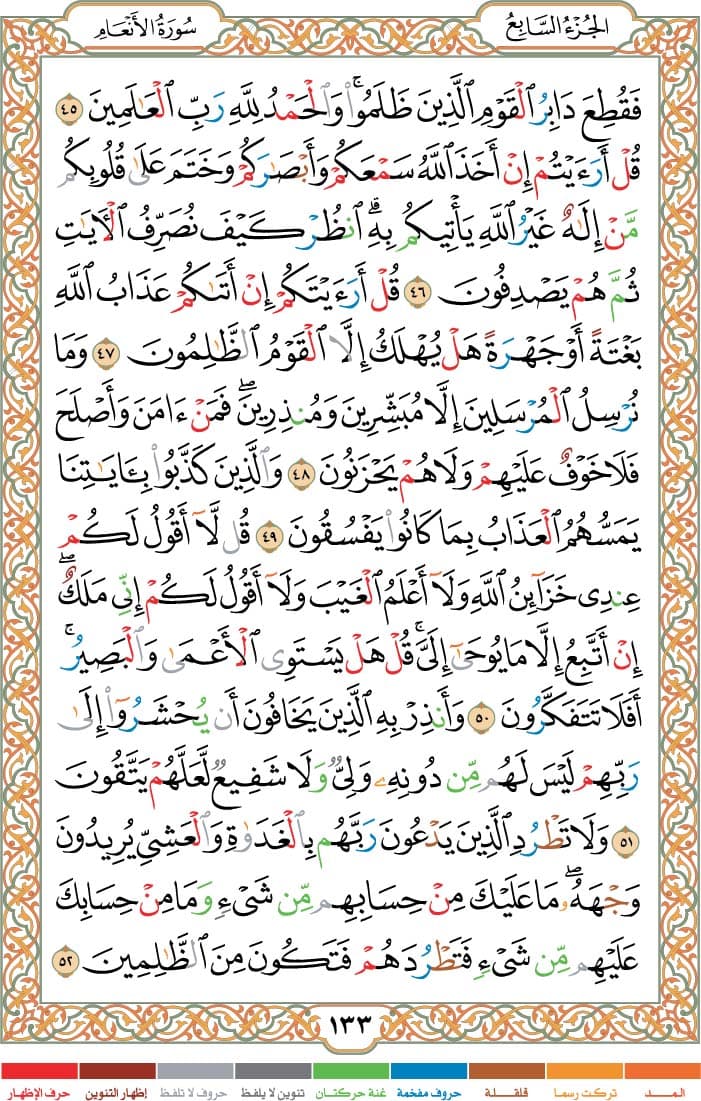 الجزء السابع
سورة الأنعام
فَقُطِعَ دَابِرُ ٱلْقَوْمِ ٱلَّذِينَ ظَلَمُوا۟ ۚ وَٱلْحَمْدُ لِلَّهِ رَبِّ ٱلْعَـٰلَمِينَ ٤٥
قُلْ أَرَءَيْتُمْ إِنْ أَخَذَ ٱللَّهُ سَمْعَكُمْ وَأَبْصَـٰرَكُمْ وَخَتَمَ عَلَىٰ قُلُوبِكُم
مَّنْ إِلَـٰهٌ غَيْرُ ٱللَّهِ يَأْتِيكُم بِهِ ۗ ٱنظُرْ كَيْفَ نُصَرِّفُ ٱلْـَٔايَـٰتِ
ثُمَّ هُمْ يَصْدِفُونَ ٤٦ قُلْ أَرَءَيْتَكُمْ إِنْ أَتَىٰكُمْ عَذَابُ ٱللَّهِ
بَغْتَةً أَوْ جَهْرَةً هَلْ يُهْلَكُ إِلَّا ٱلْقَوْمُ ٱلظَّـٰلِمُونَ ٤٧ وَمَا
نُرْسِلُ ٱلْمُرْسَلِينَ إِلَّا مُبَشِّرِينَ وَمُنذِرِينَ ۖ فَمَنْ ءَامَنَ وَأَصْلَحَ
فَلَا خَوْفٌ عَلَيْهِمْ وَلَا هُمْ يَحْزَنُونَ ٤٨ وَٱلَّذِينَ كَذَّبُوا۟ بِـَٔايَـٰتِنَا
يَمَسُّهُمُ ٱلْعَذَابُ بِمَا كَانُوا۟ يَفْسُقُونَ ٤٩ قُل لَّآ أَقُولُ لَكُمْ
عِندِى خَزَآئِنُ ٱللَّهِ وَلَآ أَعْلَمُ ٱلْغَيْبَ وَلَآ أَقُولُ لَكُمْ إِنِّى مَلَكٌ ۖ
إِنْ أَتَّبِعُ إِلَّا مَا يُوحَىٰٓ إِلَىَّ ۚ قُلْ هَلْ يَسْتَوِى ٱلْأَعْمَىٰ وَٱلْبَصِيرُ ۚ
أَفَلَا تَتَفَكَّرُونَ ٥٠ وَأَنذِرْ بِهِ ٱلَّذِينَ يَخَافُونَ أَن يُحْشَرُوٓا۟ إِلَىٰ
رَبِّهِمْ ۙ لَيْسَ لَهُم مِّن دُونِهِۦ وَلِىٌّ وَلَا شَفِيعٌ لَّعَلَّهُمْ يَتَّقُونَ
٥١ وَلَا تَطْرُدِ ٱلَّذِينَ يَدْعُونَ رَبَّهُم بِٱلْغَدَوٰةِ وَٱلْعَشِىِّ يُرِيدُونَ
وَجْهَهُۥ ۖ مَا عَلَيْكَ مِنْ حِسَابِهِم مِّن شَىْءٍ وَمَا مِنْ حِسَابِكَ
عَلَيْهِم مِّن شَىْءٍ فَتَطْرُدَهُمْ فَتَكُونَ مِنَ ٱلظَّـٰلِمِينَ ٥٢
١٣٣
المــد تركت رسما قلقلة حروف مفخمة غنة حركتان تنوين لا يلفظ حروف لا تلفظ إظهار التنوين حرف الإظهار